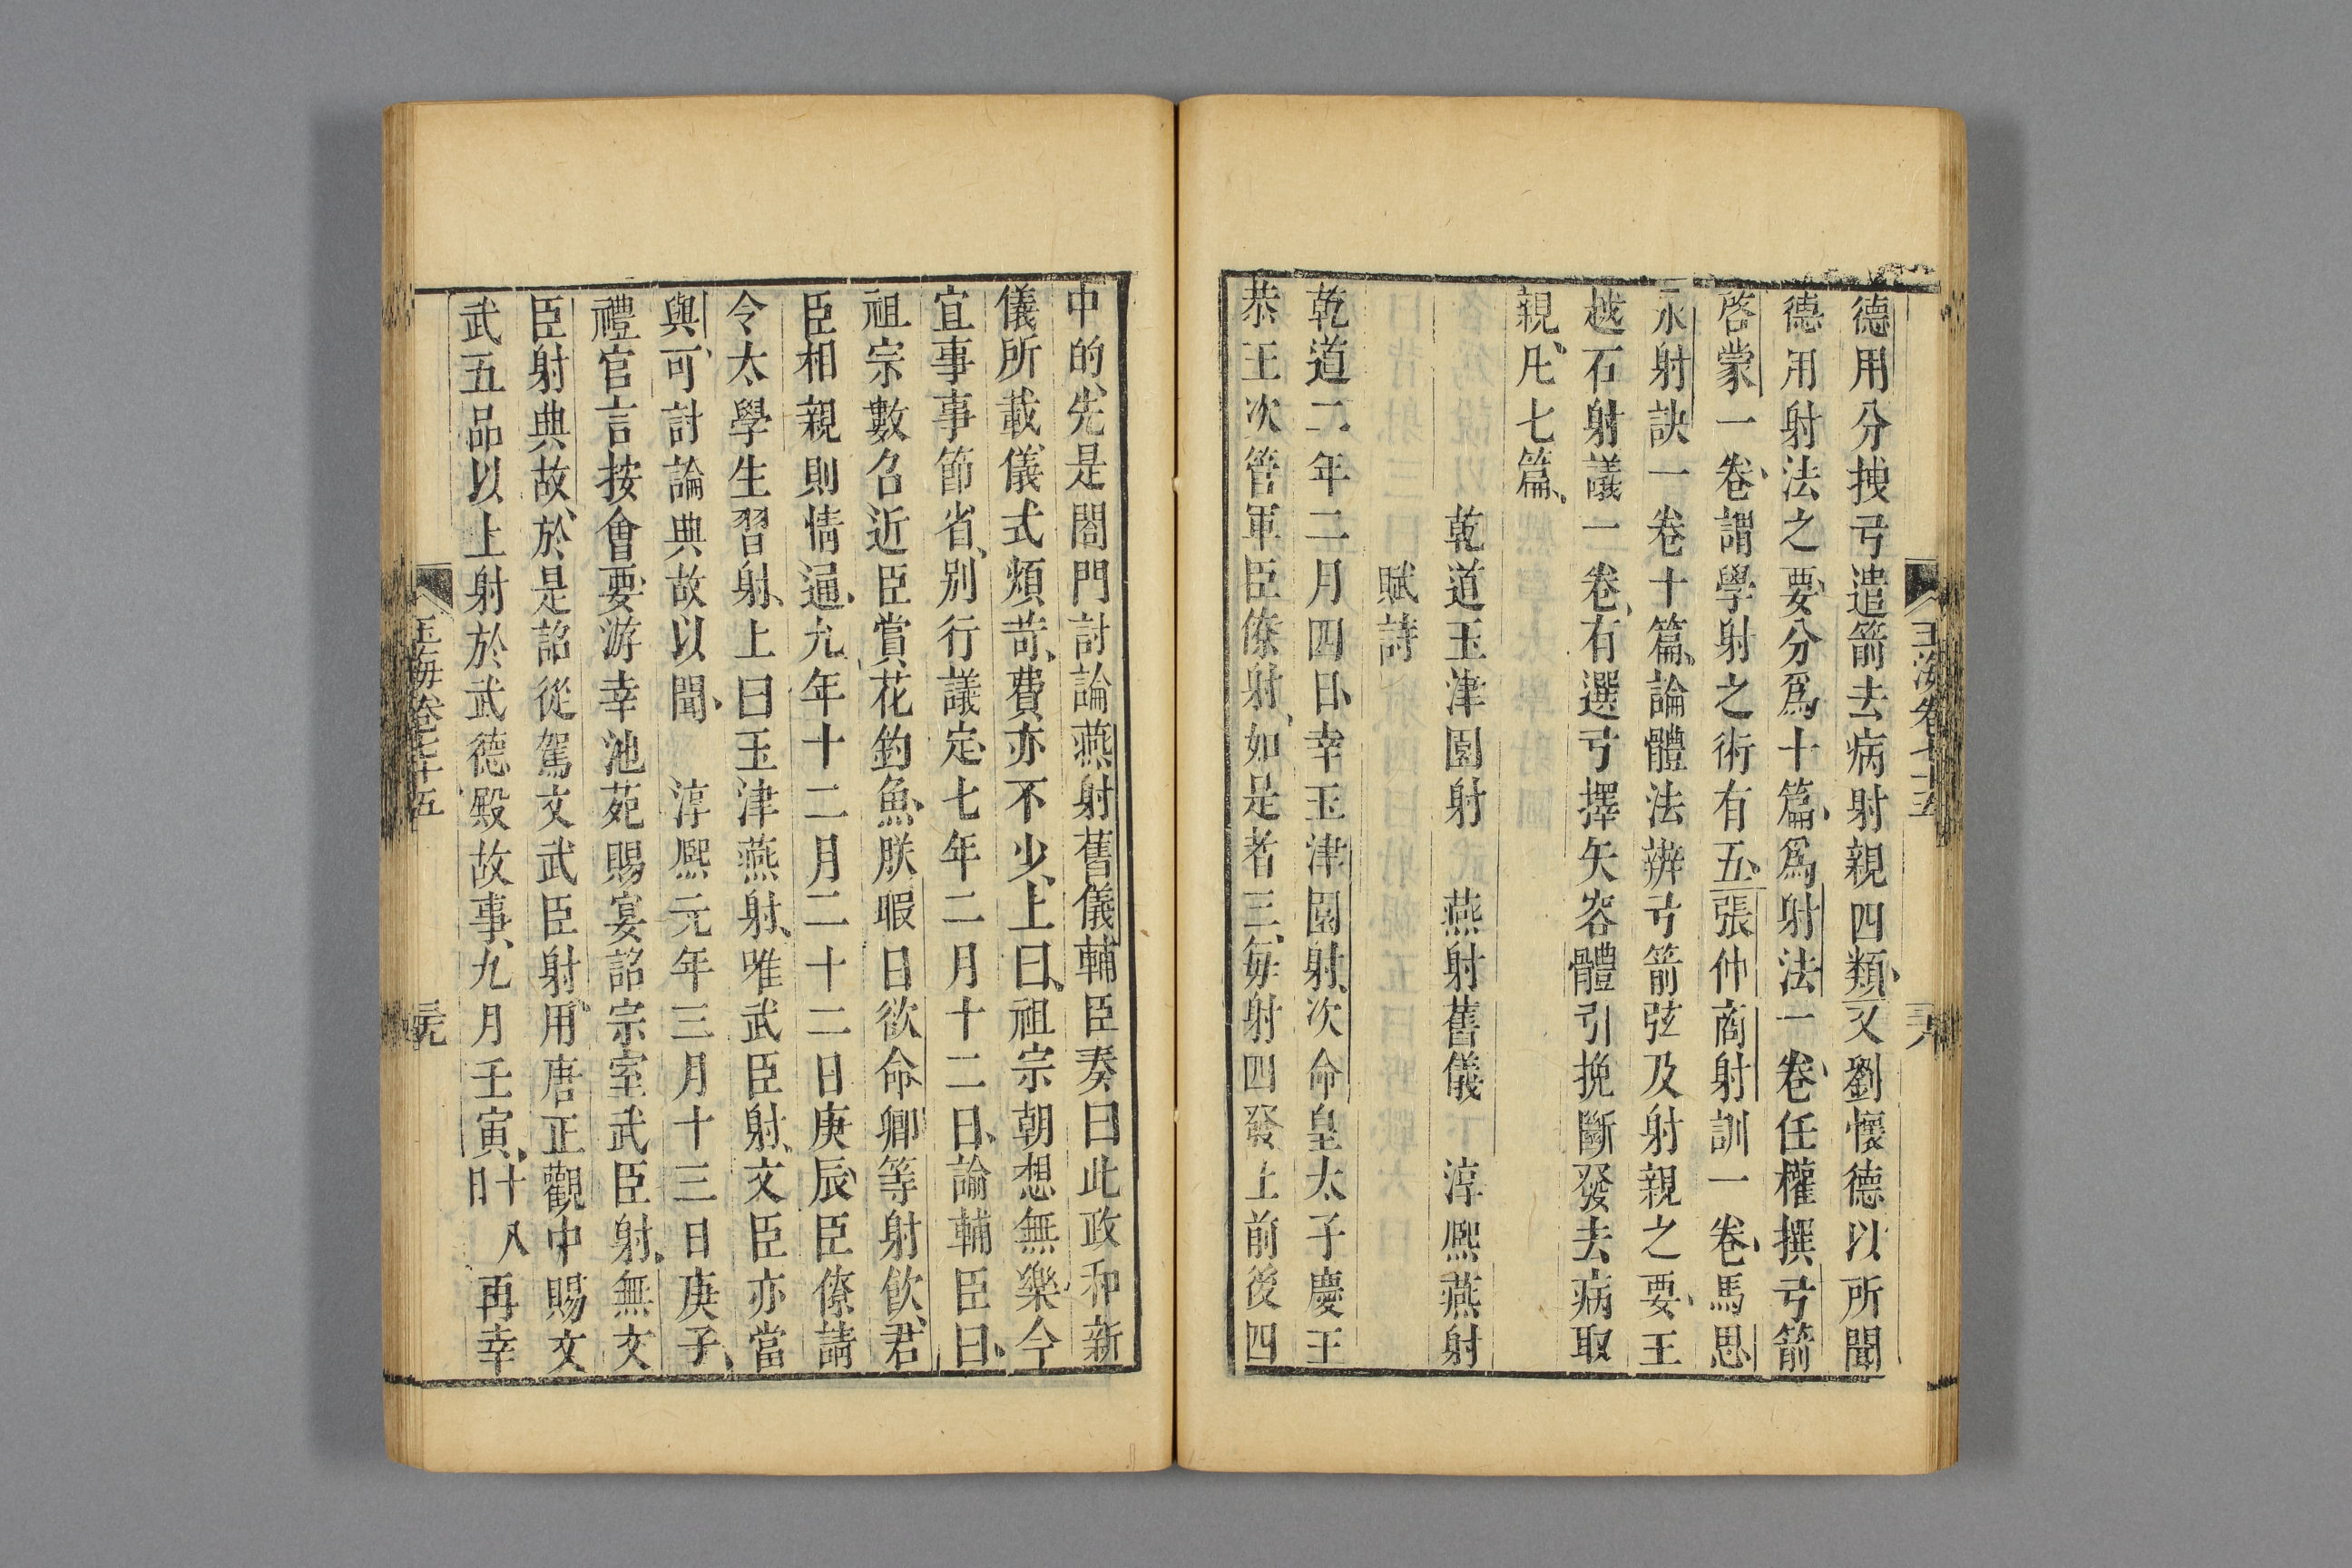 玉海卷七十五 三六
德用分拽弓遣箭去病射親四類又劉懷德以所聞
德用射法之要分爲十篇爲射法一卷任權撰弓箭
啓蒙一卷謂學射之術有五張仲商射訓一卷馬思
永射訣一卷十篇論體法辨弓箭弦及射親之要王
越石射議一卷有選弓擇矢容體引挽斷發去病取
親凡七篇
乾道玉津園射 燕射舊儀 淳熙燕射
賦詩
乾道二年二月四日幸玉津園射次命皇太子慶王
恭王次管軍臣僚射如是者三每射四發上前後四
中的先是閤門討論燕射舊儀輔臣奏曰此政和新
儀所載儀式煩苛費亦不少上曰祖宗朝想無樂今
宜事事節省別行議定七年二月十二日諭輔臣曰
祖宗數召近臣賞花釣魚朕暇日欲命卿等射飲君
臣相親則情逼九年十二月二十二日庚辰臣僚請
令太學生習射上曰玉津燕射唯武臣射文臣亦當
與可討論典故以聞 淳熙元年三月十三日庚子
禮官言按會要游幸池苑賜宴詔宗室武臣射無文
臣射典故於是詔從駕文武臣射用唐正觀中賜文
武五品以上射於武德殿故事九月壬寅十八日再幸
玉海卷七十五 元